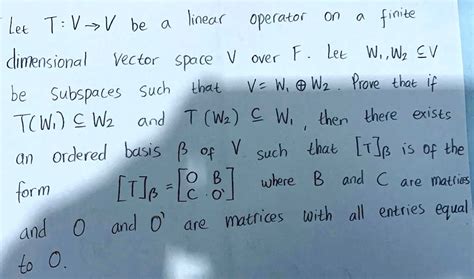 Let T: V → V be a linear operator on a finite
dimensional vector space V over F. Let W₁, W₂ ⊆ V
be subspaces such that V = W₁ ⊕ W₂. Prove that if
T(W₁) ⊆ W₂ and T(W₂) ⊆ W₁, then there exists
an ordered basis β of V such that [T]β is of the
form [T]β = [O B
C O'] where B and C are matrices
and O and O' are matrices with all entries equal
to 0.